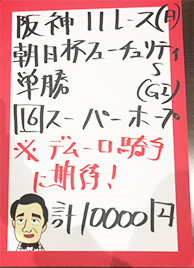 阪神11レース(日)
朝日杯フューチュリティ
S
単勝 (GI)
16 スーパーホープ
※デムーロ騎手
に期待!
計10000円